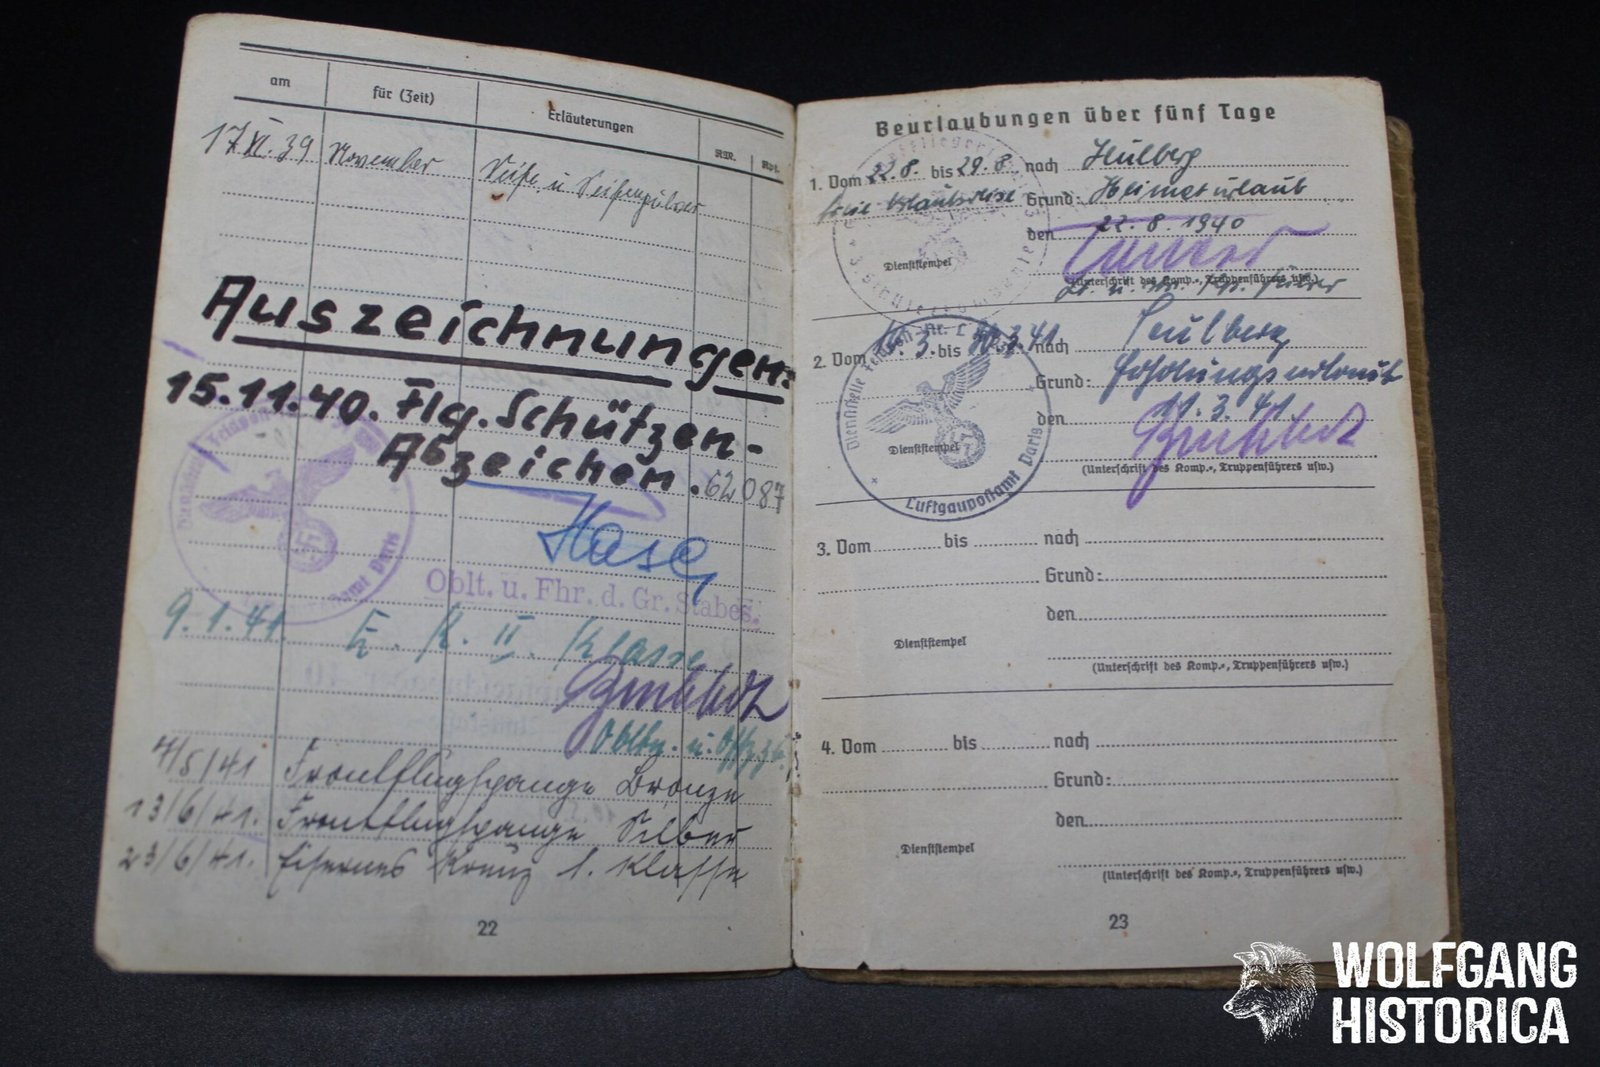 am für (Zeit) Erläuterungen RM. Rpf.
17.XI.39 November Seife u Seifenpulver
Auszeichnungen:
15.11.40. Flg. Schützen-
Abzeichen. 62087
Hase
Oblt. u. Fhr. d. Gr. Stabes.
9.1.41. E. K. II. Klasse
Obltn. u.
4/5/41 Frontflugspange Bronze
13/6/41. Frontflugspange Silber
23/6/41. Eisernes Kreuz 1. Klasse
22
Beurlaubungen über fünf Tage
1. Vom 22.8. bis 29.8. nach
Grund: Heimaturlaub
den 22.8.1940
Dienststempel
(Unterschrift des Komp.-, Truppenführers usw.)
2. Vom bis nach
Grund: Erholungsurlaub
den 11.3.41.
Dienststempel
(Unterschrift des Komp.-, Truppenführers usw.)
Dienststelle Feldpost Nr. L
Luftgaupostamt Paris
3. Vom bis nach
Grund:
den
Dienststempel
(Unterschrift des Komp.-, Truppenführers usw.)
4. Vom bis nach
Grund:
den
Dienststempel
(Unterschrift des Komp.-, Truppenführers usw.)
23
WOLFGANG
HISTORICA